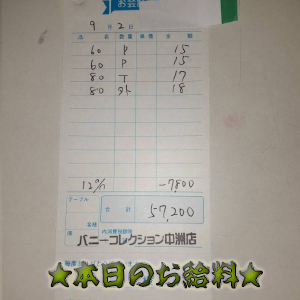 お会
9月2日
品 名 数 量 単 価 金 額
60 P 15
60 P 15
80 T 17
80 外 18
12% -7,800
テーブル
合 計 57,200
名様
係
バニーコレクション中洲店
★本日のお給料★